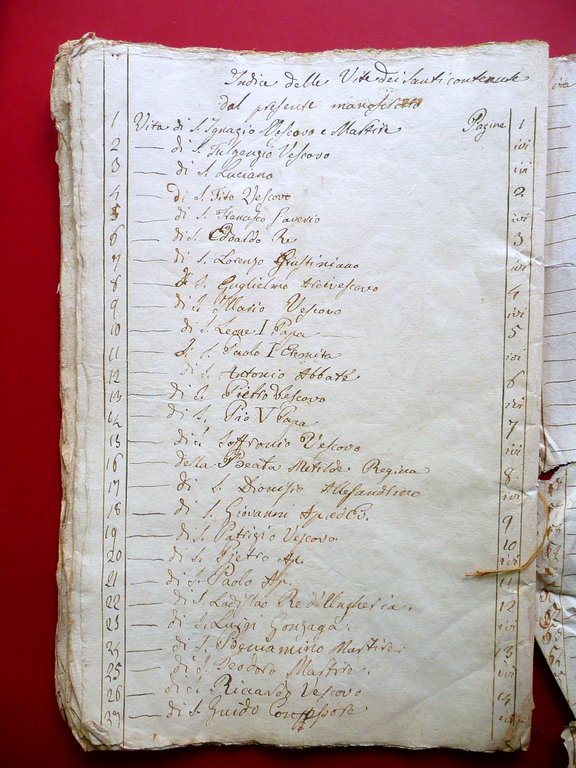 Indice delle Vite dei Santi contenute
dal presente manoscritto
1 Vita di S. Ignazio Vescovo e Martire Pagine 1
2 — di S. Fulgenzio Vescovo ivi
3 — di S. Luciano ivi
4 di S. Tito Vescovo 2
5 — di S. Francesco Saverio ivi
6 — di S. Edoardo Re 3
7 — di S. Lorenzo Giustiniano ivi
8 — di S. Guglielmo Arcivescovo 4
9 — di S. Mario Vescovo ivi
10 — di S. Leone I Papa 5
11 — di S. Paolo I Eremita ivi
12 — di S. Antonio Abbate 6
13 — di S. Pietro Vescovo ivi
14 — di S. Pio V Papa 7
15 — di S. Soffronio Vescovo ivi
16 — della Beata Matilde Regina 8
17 — di S. Dionisio Allesandrino ivi
18 — di S. Giovanni Ap. ed Ev. 9
19 — di S. Patrizio Vescovo 10
20 — di S. Pietro Ap. ivi
21 — di S. Paolo Ap. 11
22 — di S. Ladislao Re d'Ungheria. 12
23 — di S. Luigi Gonzaga. ivi
24 — di S. Beniamino Martire. 13
25 — di S. Teodoro Martire. ivi
26 — di S. Riccardo Vescovo 14
27 — di S. Guido ivi